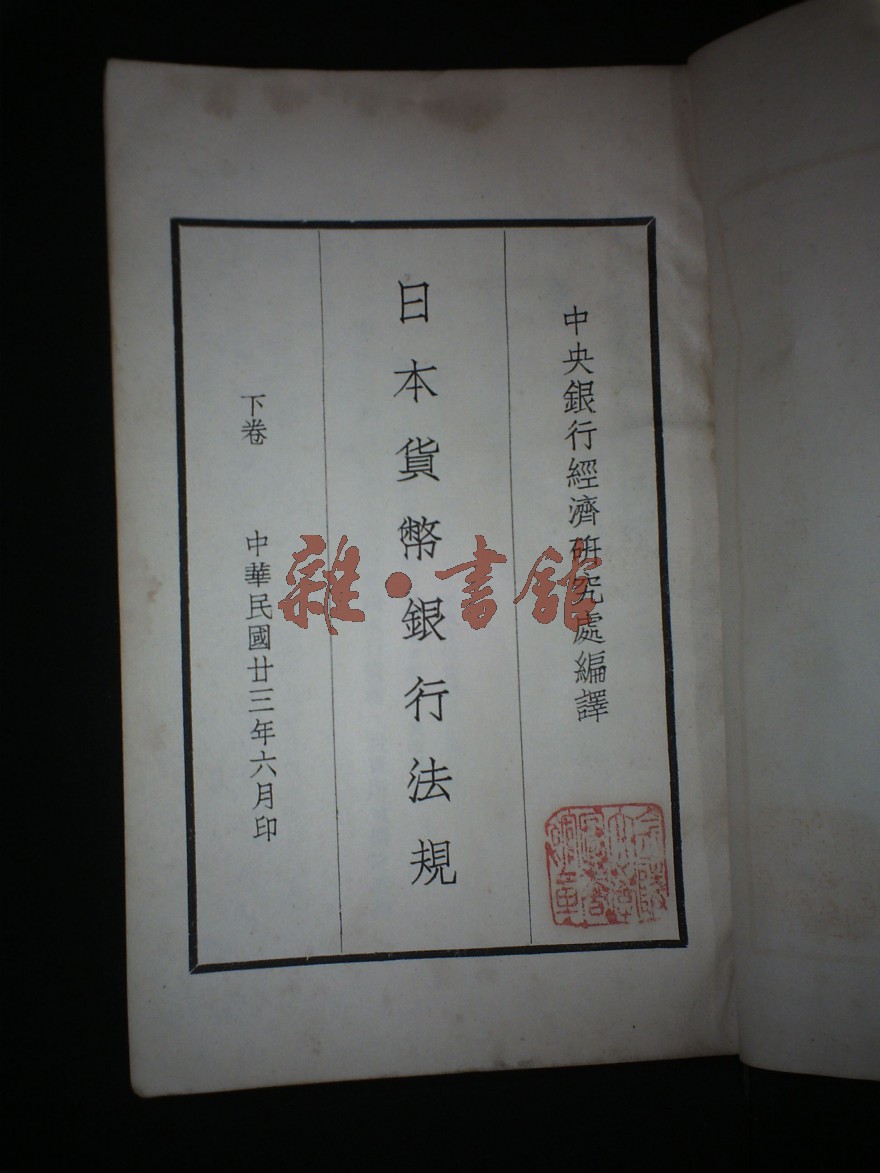 中央銀行經濟研究處編譯
日本貨幣銀行法規
下卷
中華民國廿三年六月印
雜·書館